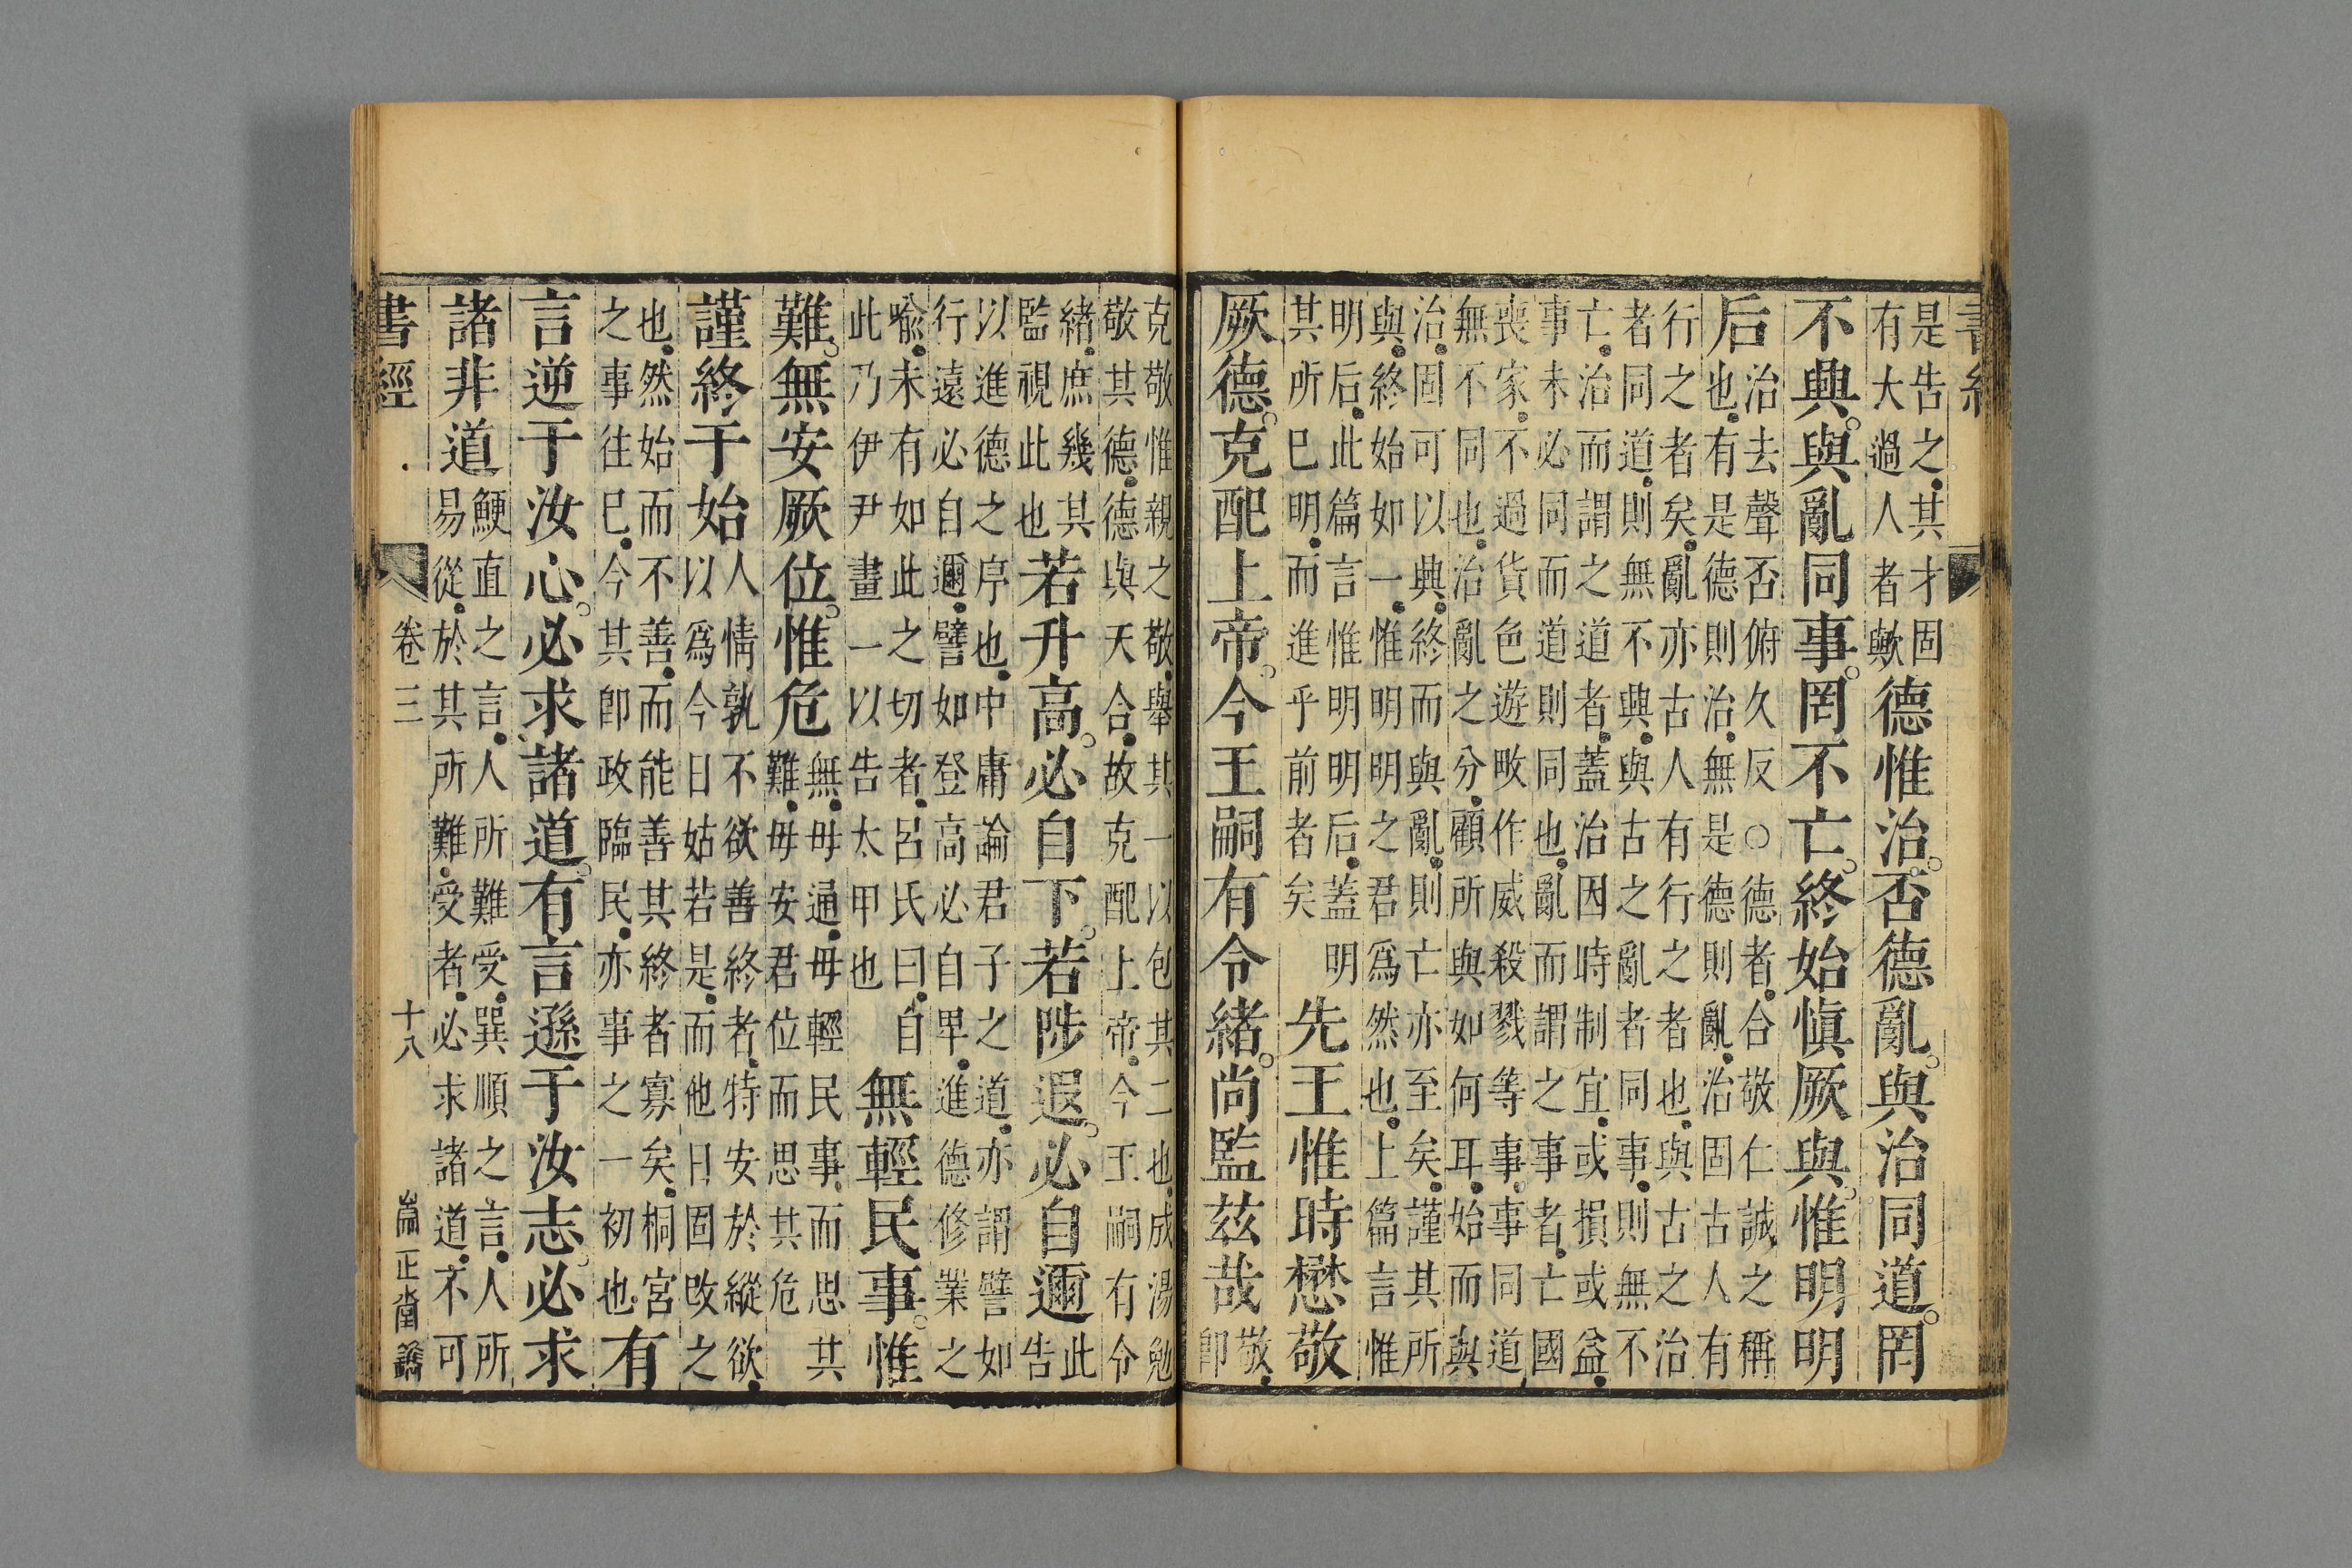 書經
是告之其才固
有大過人者歟
德惟治否德亂與治同道罔
不興與亂同事罔不亡終始愼厥與惟明明
后
治去聲否俯久反○德者合敬仁誠之稱
也有是德則治無是德則亂治固古人有
行之者矣亂亦古人有行之者也與古之治
者同道則無不興與古之亂者同事則無不
亡治而謂之道者蓋治因時制宜或損或益
事未必同而道則同也亂而謂之事者亡國
喪家不過貨色遊畋作威殺戮等事事同道
無不同也治亂之分顧所與如何耳始而與
治固可以興終而與亂則亡亦至矣謹其所
與終始如一惟明明之君爲然也上篇言惟
明后此篇言惟明明后蓋明
其所已明而進乎前者矣
先王惟時懋敬
厥德克配上帝今王嗣有令緒尚監茲哉
敬
即
克敬惟親之敬舉其一以包其二也成湯勉
敬其德德與天合故克配上帝今王嗣有令
緒庶幾其
監視此也
若升高必自下若陟遐必自邇
此
告
以進德之序也中庸論君子之道亦謂譬如
行遠必自邇譬如登高必自卑進德修業之
喩未有如此之切者呂氏曰自
此乃伊尹畫一以告太甲也
無輕民事惟
難無安厥位惟危
無毋通毋輕民事而思其
難毋安君位而思其危
謹終于始
人情孰不欲善終者特安於縱欲
以爲今日姑若是而他日固改之
也然始而不善而能善其終者寡矣桐宮
之事往已今其即政臨民亦事之一初也
有
言逆于汝心必求諸道有言遜于汝志必求
諸非道
鯁直之言人所難受巽順之言人所
易從於其所難受者必求諸道不可
書經 卷三 十八 正堂鐫